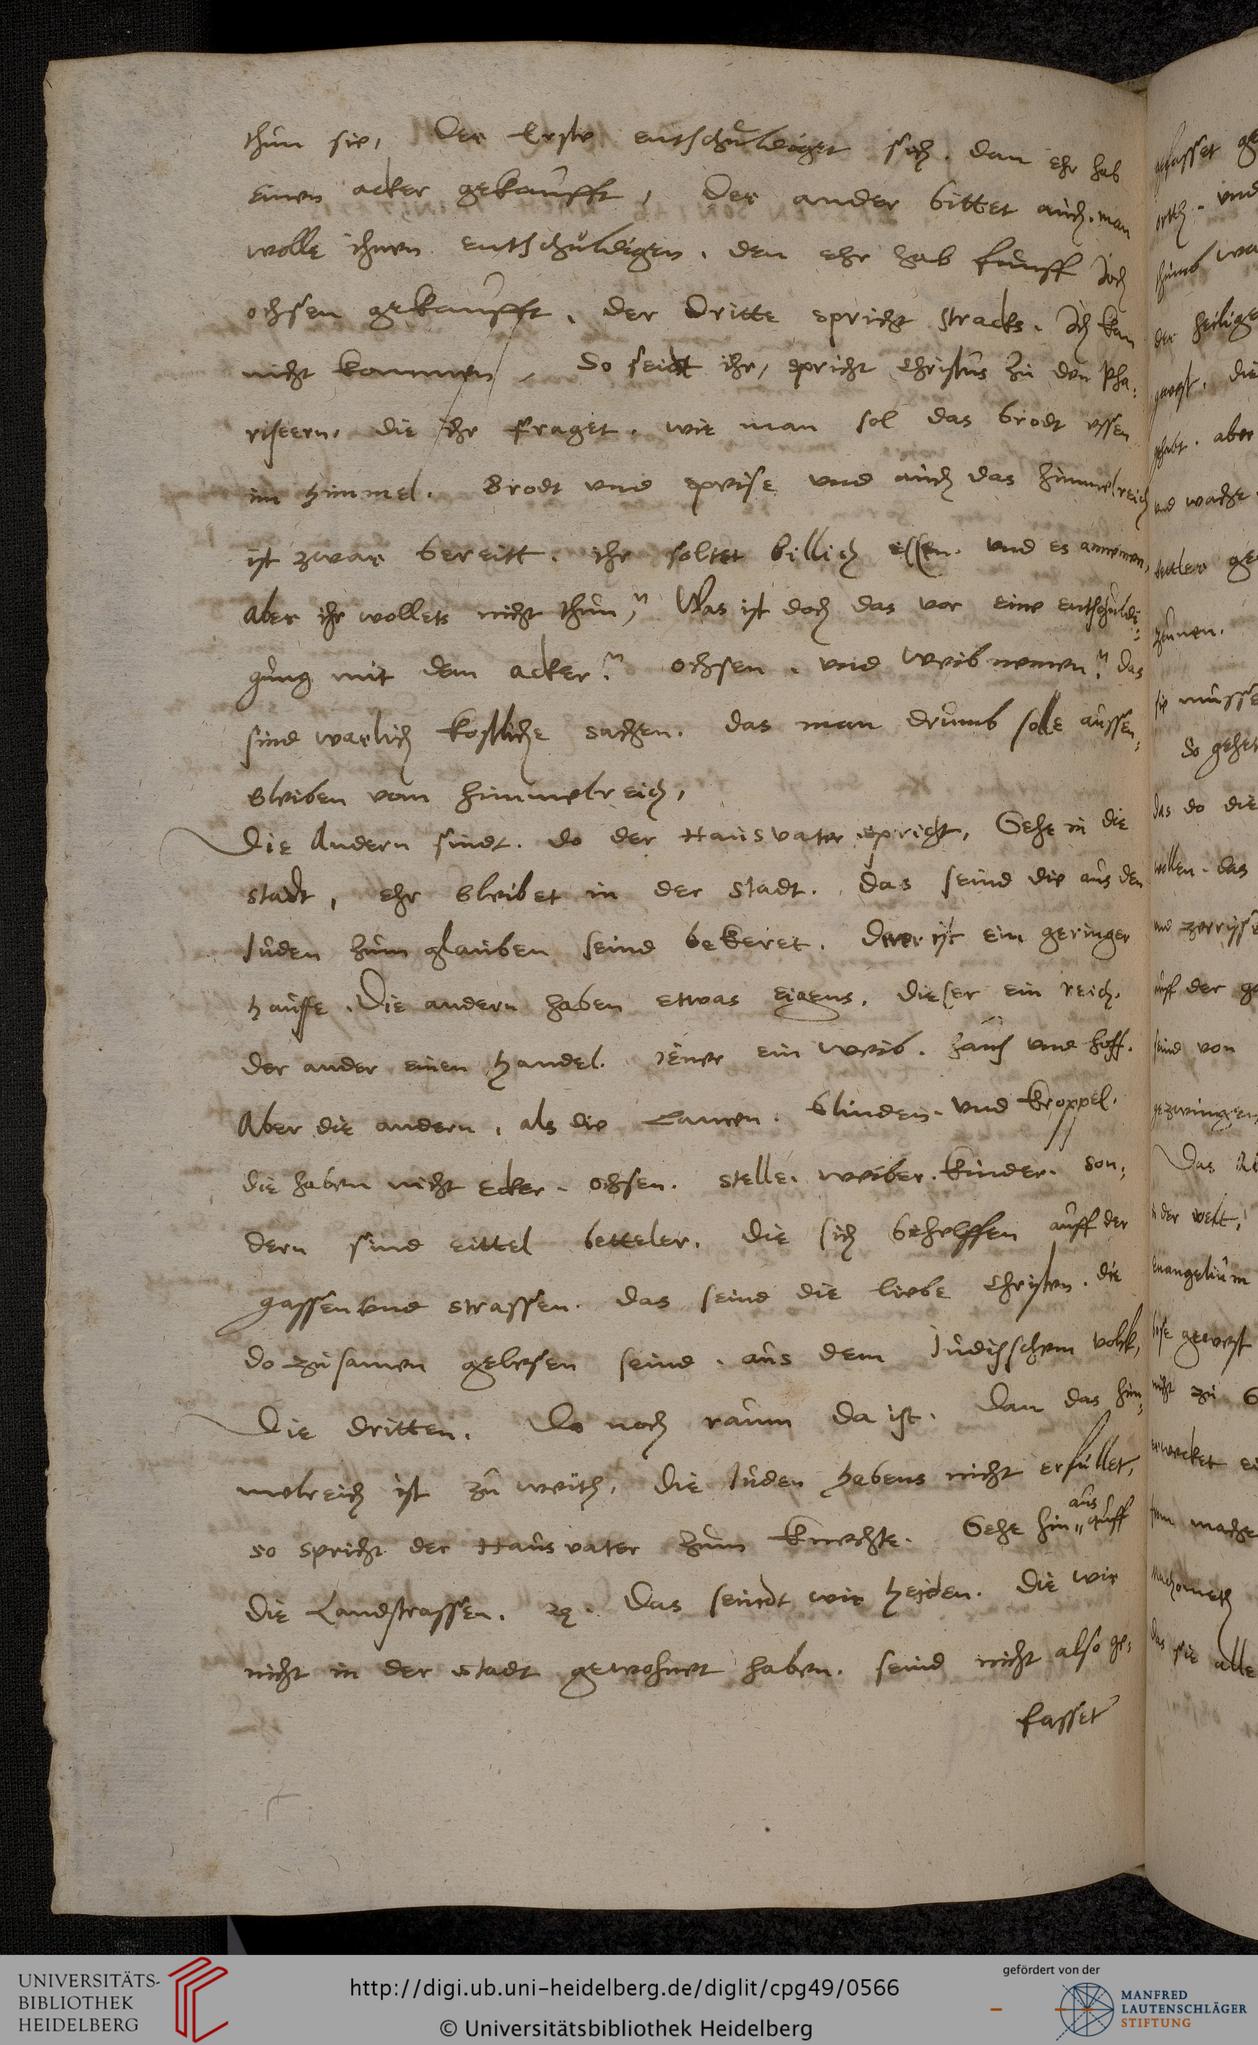 thun sie, Der Erste entschuldiget sich. dan ehr hab
einen acker gekaufft, Der ander bittet auch. man
wolle ihnen entschuldigen. den ehr hab funff Joch
ochsen gekaufft. der Dritte spricht stracks. Ich kan
nicht kommen, So seidt ihr, spricht Christus zu den Pha:
riseern. die ihr fraget. wie man sol das brodt essen
im himmel. Brodt und speise und auch das himmelreich
ist zwar bereitt. ihr soltet billich essen. und es annemen,
Aber ihr wollets nicht thun, Was ist doch das vor eine entschuldi:
gung mit dem acker? ochsen. und weib nemen? das
sind warlich kostliche sachen. das man drumb solle aussen:
bleiben vom himmelreich,
Die Andern sindt. do der Hausvater spricht, Gehe in die
stadt, ehr bleibet in der stadt. das seind die aus den
Juden zum glauben seind bekeret. Der ist ein geringer
hauffe. Die andern haben etwas eigens. dieser ein reich.
der ander einen handel. jener ein weib. haus und hoff.
Aber die andern, als die Lamen. blinden. und kroppel.
die haben nicht Ecker. ochsen. stelle. weiber. kinder. son:
dern sind eittel betteler. die sich behelffen auff der
gassen und strassen. das seind die liebe Christen. die
do zusamen gelesen seind. aus dem Judischem volck,
Die dritten. Do noch raum da ist. Dan das him:
melreich ist zu weith. die Juden habens nicht erfullet,
so spricht der Hausvater zum knechte. Gehe hin aus auff
die Landstrassen. ꝛc. Das seindt wir heiden. die wir
nicht in der stadt gewohnet haben. seind nicht also ge:
fasset
UNIVERSITÄTS-
BIBLIOTHEK
HEIDELBERG
http://digi.ub.uni-heidelberg.de/diglit/cpg49/0566
© Universitätsbibliothek Heidelberg
gefördert von der
MANFRED
LAUTENSCHLÄGER
STIFTUNG